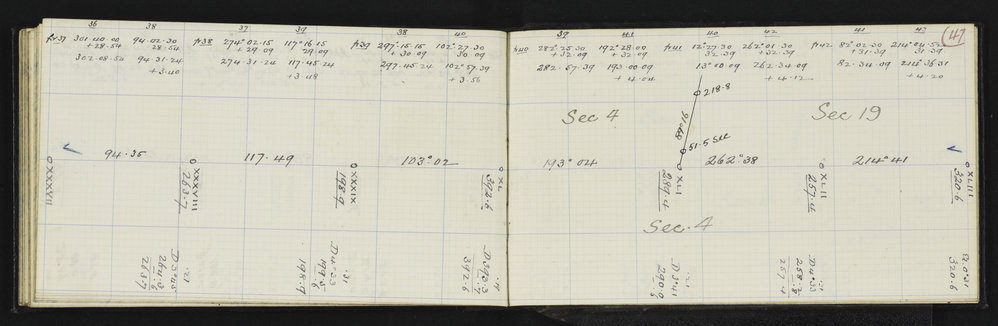 36 38 37 39 38 40
fr 37 301·40·00 94·02·30 fr 38 274°02·15 117°16·15 fr 39 297·15·15 102°27·30
+28·54 28·54 +29·09 29·09 +30·09 30·09
302·08·54 94·31·24 274·31·24 117·45·24 297·45·24 102°57·39
+3·40 +3·48 +3·56
94·35 117·49 103°02
O XXXVII
O XXXVIII
263·7
O XXXIX
198·9
O XL
392·6
·21
D 3°45
264·3
263·7
·31
D 4°33
198·9
·17
392·6
39 41 40 42 41 43
fr 40 282°25·30 192°28·00 fr 41 12°27·30 262°01·30 fr 42 82°02·30 214°04·52
+32·09 +32·09 32·39 +32·39 +31·39 31·39
282·57·39 193·00·09 13°00·09 262·34·09 82·34·09 214°36·31
+4·04 +4·12 +4·20
47
218·8
Sec 4
Sec 19
51·5 Sec
193°04 262°38 214°41
O XLI
289·4
O XLII
257·4
O XLIII
320·6
Sec·4
·21
D 3°41
290·0
·21
D 4°33
258·2
257·4
320·6